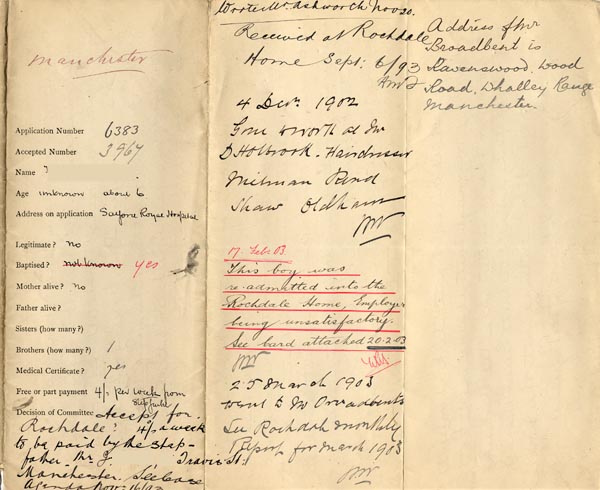 Manchester
Application Number 6383
Accepted Number 3967
Name
Age unknown about 6
Address on application Salford Royal Hospital
Legitimate? No
Baptised? not known yes
Mother alive? No
Father alive?
Sisters (how many?)
Brothers (how many?) 1
Medical Certificate? yes
Free or part payment 4/- per week from
stepfather
Decision of Committee Accept for
Rochdale. 4/- a week
to be paid by the step-
father Mr J. Travis St.
Manchester. See Case
Agenda Nov. 16/92
Wrote Mr Ashworth Nov 20.
Received at Rochdale
Home Sept. 6/93
4 Decr. 1902
Gone to work at Mr
D Holbrook. Hairdresser
Milman Rind
Shaw Oldham
17. Feb 03.
This boy was
re-admitted into the
Rochdale Home, Employer
being unsatisfactory.
See card attached 20.2.03
25 March 1903
went to Mr Broadbents
See Rochdale monthly
Report for March 1903
Address of Mr
Broadbent is
Ravenswood, Wood
Road, Whalley Range
Manchester.